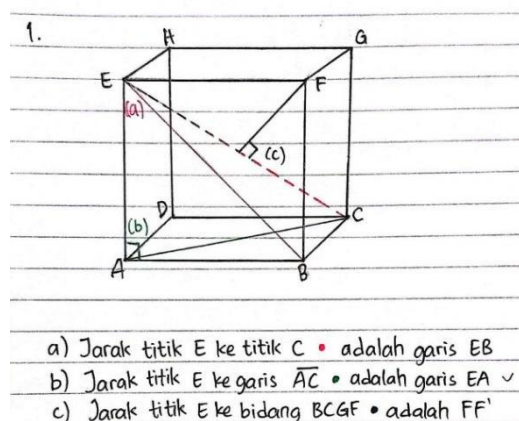 1.
H
G
E
F
(a)
(c)
(b)
D
C
A
B
a) Jarak titik E ke titik C • adalah garis EB
b) Jarak titik E ke garis A̅C̅ • adalah garis EA ✓
c) Jarak titik E ke bidang BCGF • adalah FF'